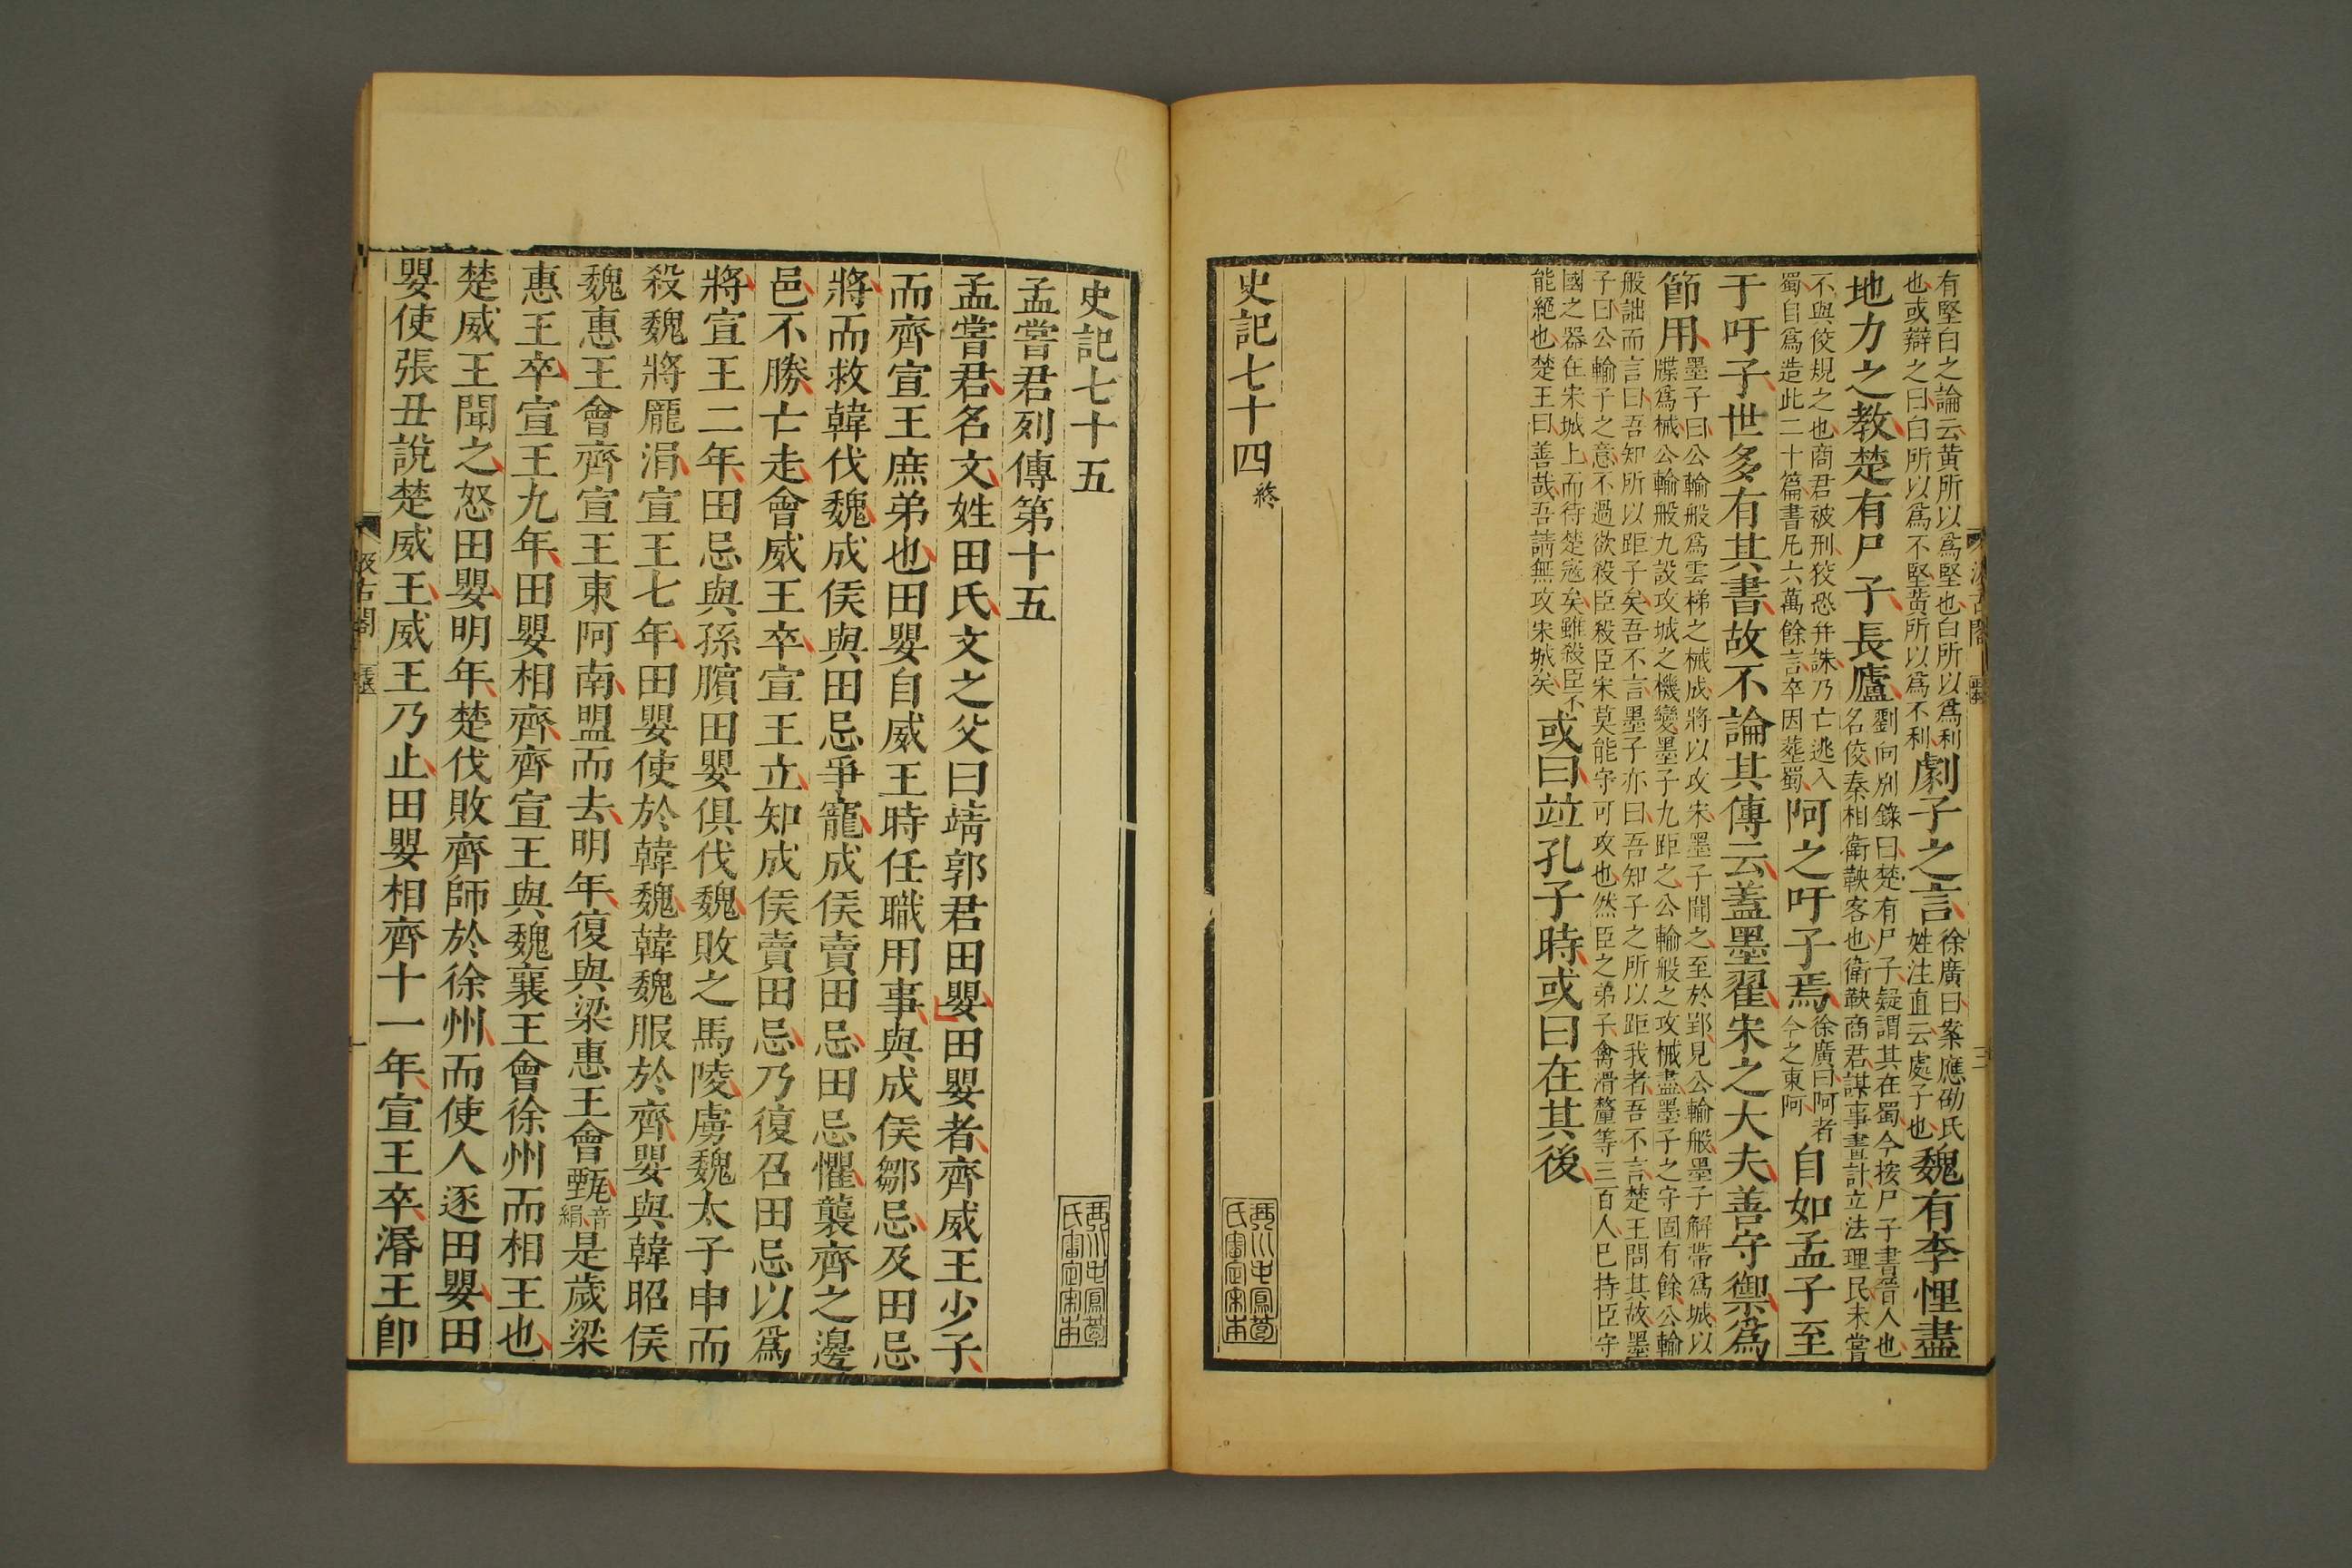 有堅白之論云黃所以爲堅也白所以爲利
也或辯之曰白所以爲不堅黃所以爲不利
劇子之言
徐廣曰案應劭氏
姓注直云處子也
魏有李悝盡
地力之教楚有尸子長廬
劉向別錄曰楚有尸子疑謂其在蜀今按尸子書晉人也
名佼秦相衛鞅客也衛鞅商君謀事畫計立法理民未嘗
不與佼規之也商君被刑佼恐幷誅乃亡逃入
蜀自爲造此二十篇書凡六萬餘言卒因葬蜀
阿之吁子焉
徐廣曰阿者
今之東阿
自如孟子至
于吁子世多有其書故不論其傳云蓋墨翟宋之大夫善守禦爲
節用
墨子曰公輸般爲雲梯之械成將以攻宋墨子聞之至於郢見公輸般墨子解帶爲城以
牒爲械公輸般九設攻城之機變墨子九距之公輸般之攻械盡墨子之守固有餘公輸
般詘而言曰吾知所以距子矣吾不言墨子亦曰吾知子之所以距我者吾不言楚王問其故墨
子曰公輸子之意不過欲殺臣殺臣宋莫能守可攻也然臣之弟子禽滑釐等三百人已持臣守
國之器在宋城上而待楚寇矣雖殺臣不
能絕也楚王曰善哉吾請無攻宋城矣
或曰竝孔子時或曰在其後
史記七十四 終
史記七十五
孟嘗君列傳第十五
孟嘗君名文姓田氏文之父曰靖郭君田嬰田嬰者齊威王少子
而齊宣王庶弟也田嬰自威王時任職用事與成侯鄒忌及田忌
將而救韓伐魏成侯與田忌爭寵成侯賣田忌田忌懼襲齊之邊
邑不勝亡走會威王卒宣王立知成侯賣田忌乃復召田忌以爲
將宣王二年田忌與孫臏田嬰俱伐魏敗之馬陵虜魏太子申而
殺魏將龐涓宣王七年田嬰使於韓魏韓魏服於齊嬰與韓昭侯
魏惠王會齊宣王東阿南盟而去明年復與梁惠王會甄
音
絹
是歲梁
惠王卒宣王九年田嬰相齊齊宣王與魏襄王會徐州而相王也
楚威王聞之怒田嬰明年楚伐敗齊師於徐州而使人逐田嬰田
嬰使張丑說楚威王威王乃止田嬰相齊十一年宣王卒湣王卽
汲古閣
一